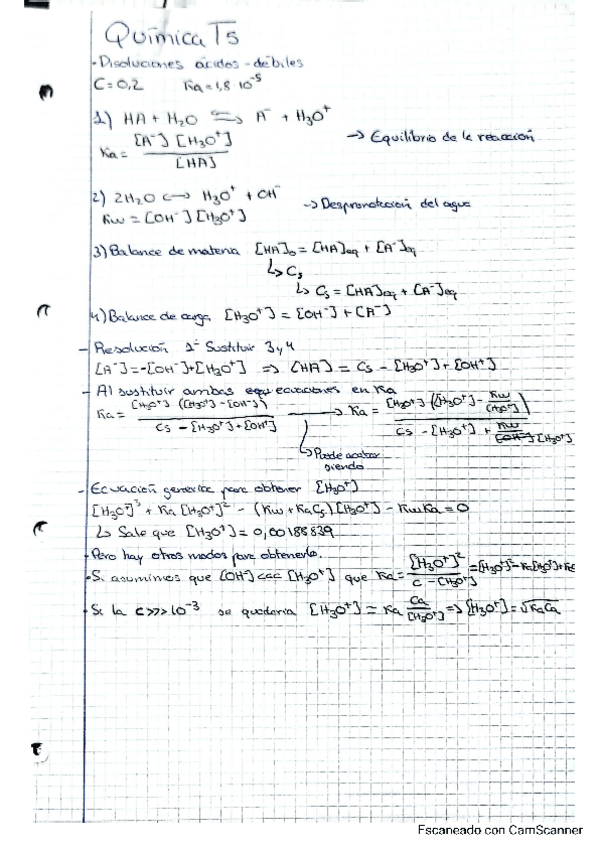 Química T5
- Disoluciones ácidos-débiles
C=0,2 Ka=1,8·10⁻⁵
1) HA + H₂O ⇌ A⁻ + H₃O⁺
Ka = [A⁻][H₃O⁺] / [HA] → Equilibrio de la reacción
2) 2H₂O ↔ H₃O⁺ + OH⁻ → Desprotonación del agua
Kw = [OH⁻][H₃O⁺]
3) Balance de materia [HA]₀ = [HA]eq + [A⁻]eq
↳ Cs
↳ Cs = [HA]eq + [A⁻]eq
4) Balance de carga [H₃O⁺] = [OH⁻] + [A⁻]
- Resolución 1º Sustituir 3 y 4
[A⁻] = -[OH⁻] + [H₃O⁺] ⇒ [HA] = Cs - [H₃O⁺] + [OH⁻]
- Al sustituir ambas ecuaciones en Ka
Ka = [H₃O⁺]([H₃O⁺] - [OH⁻]) / Cs - [H₃O⁺] + [OH⁻] → Ka = [H₃O⁺]([H₃O⁺] - Kw/[H₃O⁺]) / Cs - [H₃O⁺] + Kw/[H₃O⁺]
↳ Puede acabar
siendo
- Ecuación generica para obtener [H₃O⁺]
[H₃O]³ + Ka[H₃O⁺]² - (Kw + KaCs)[H₃O⁺] - KwKa = 0
↳ Sale que [H₃O⁺] = 0,00188839
- Pero hay otros modos para obtenerlo.
- Si asumimos que [OH⁻] <<< [H₃O⁺] que Ka = [H₃O⁺]² / C - [H₃O⁺]
- Si la C >>> 10⁻³ se quedaria [H₃O⁺] = Ka Ca/[H₃O⁺] ⇒ [H₃O⁺] = √KaCa
Escaneado con CamScanner